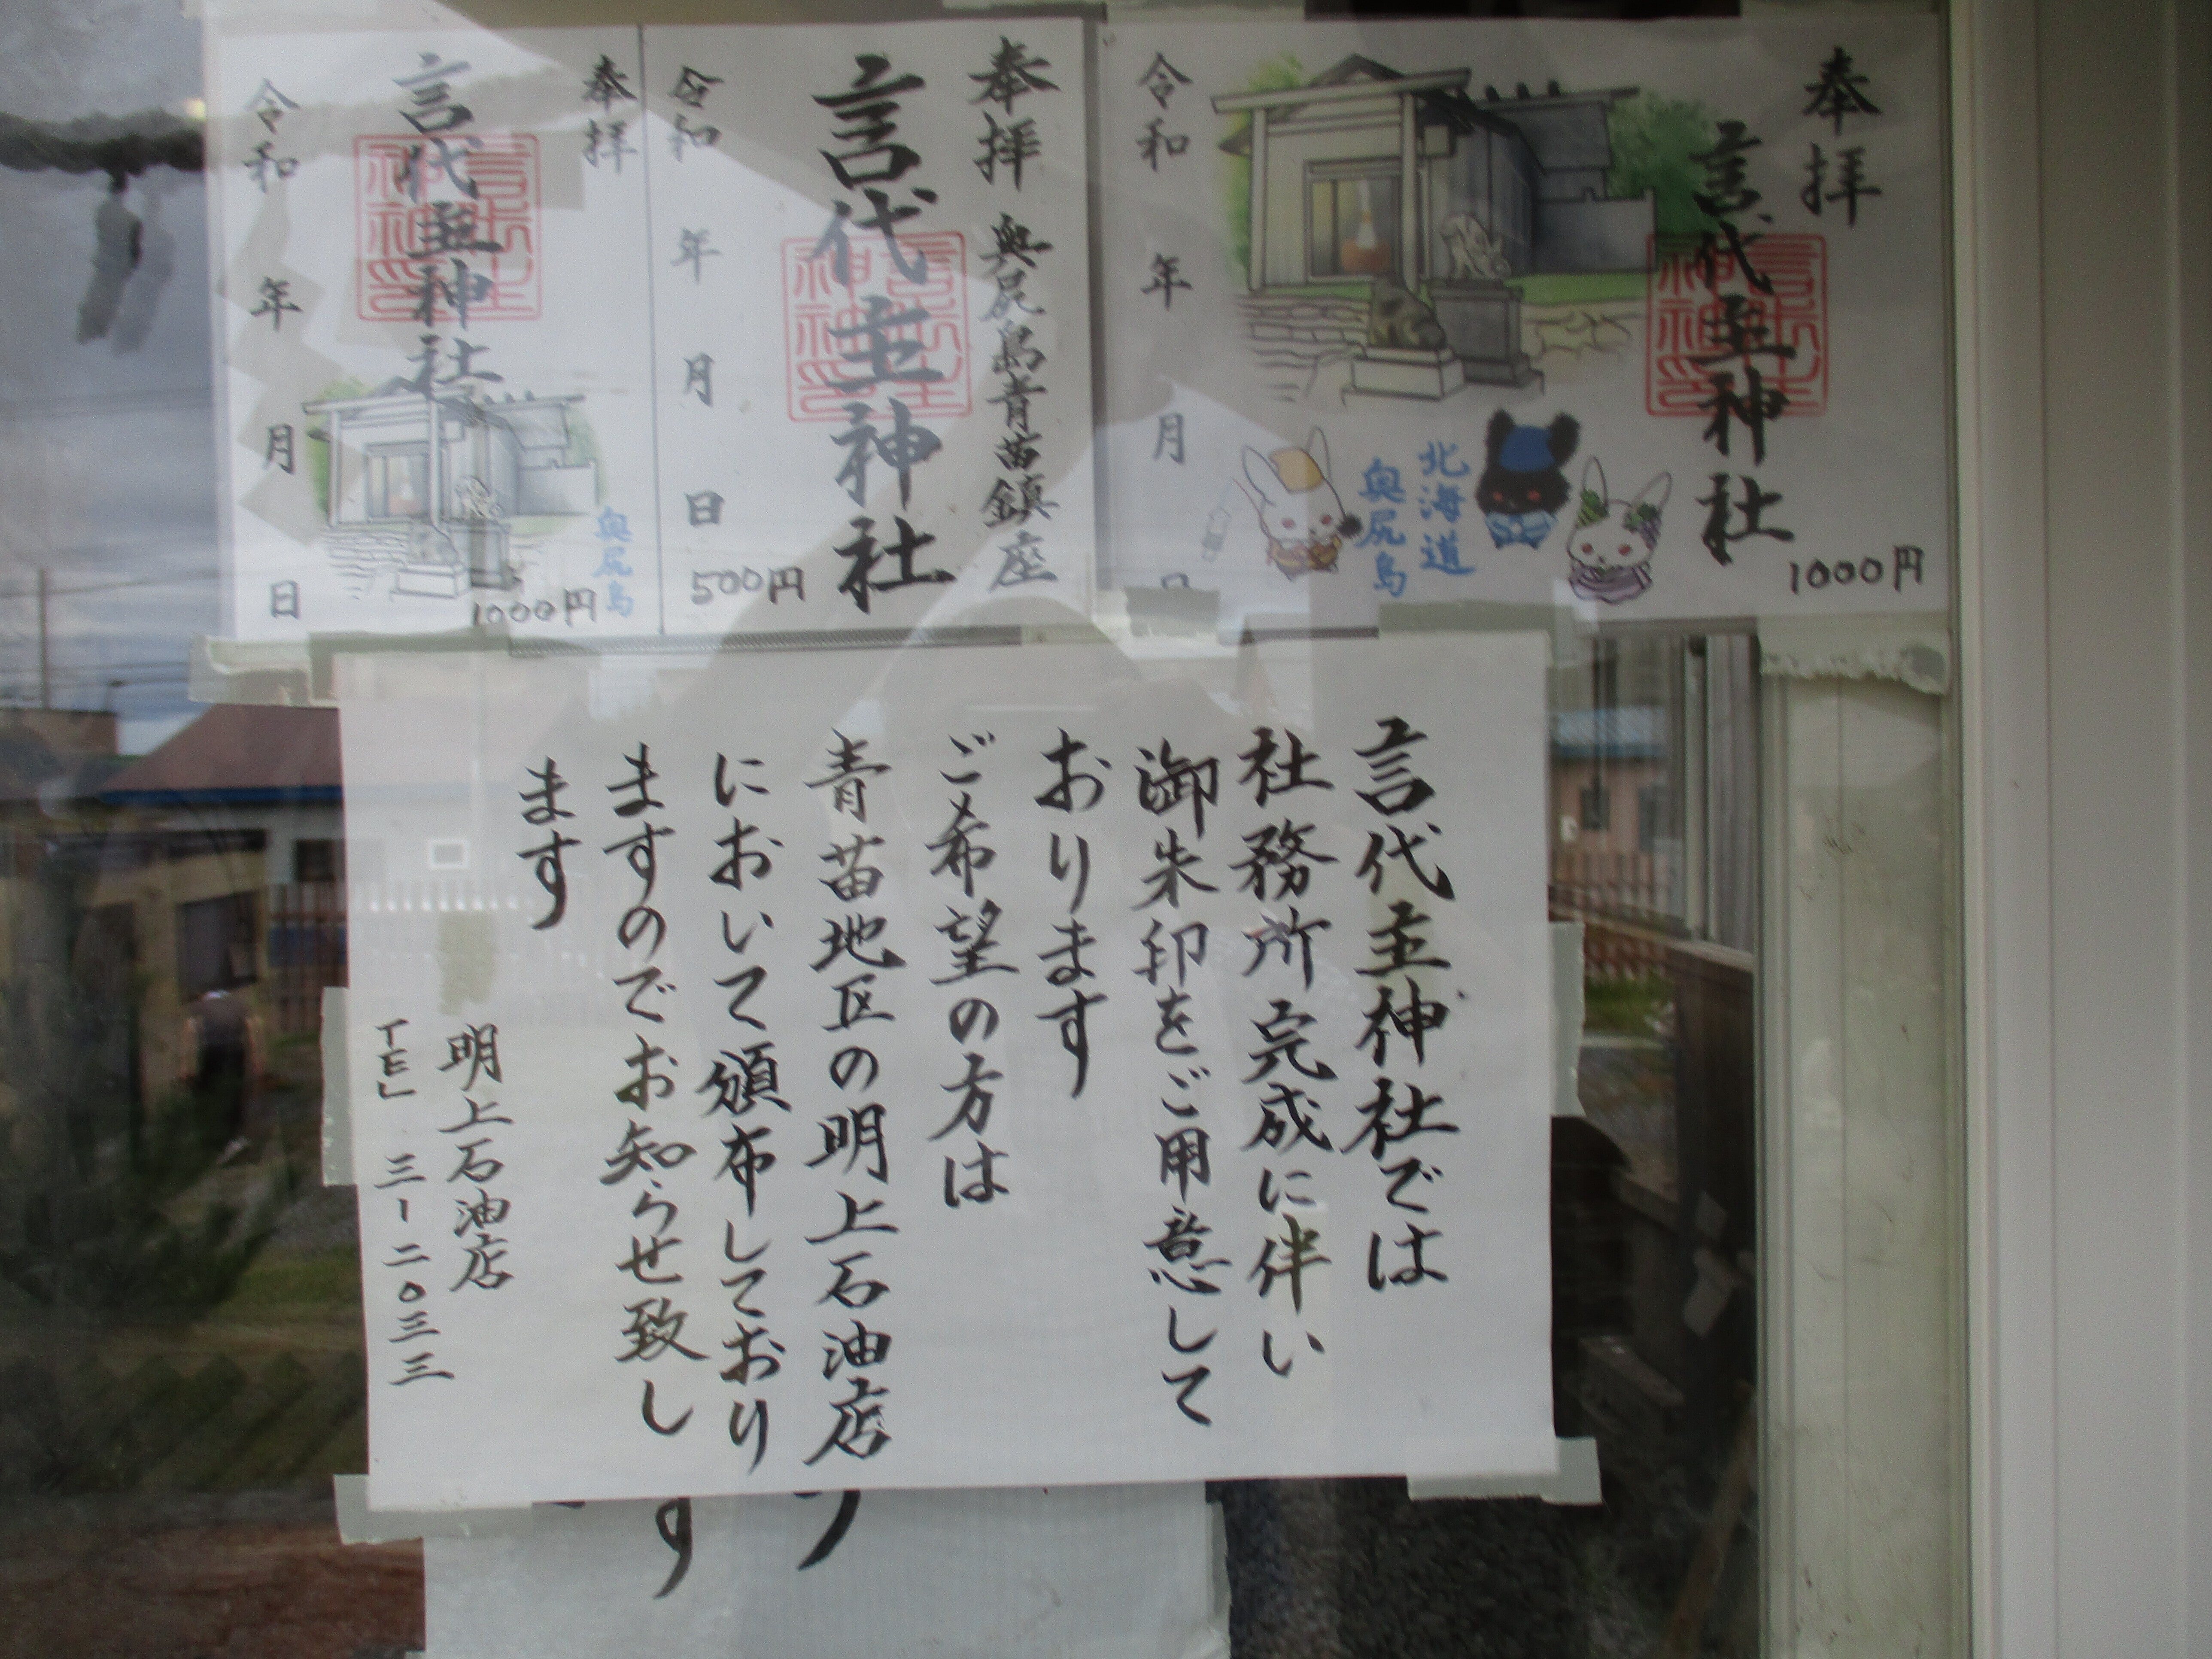 奉拝
言代主神社
令和
年
月
日
北海道
奥尻島
1000円
奉拝 奥尻島青苗鎮座
言代主神社
令和 年 月 日
500円
奉拝
言代主神社
令和 年 月 日
奥尻島
1000円
言代主神社では
社務所完成に伴い
御朱印をご用意して
おります
ご希望の方は
青苗地区の明上石油店
において頒布しており
ますのでお知らせ致し
ます
明上石油店
TEL 三ー二〇三三
す